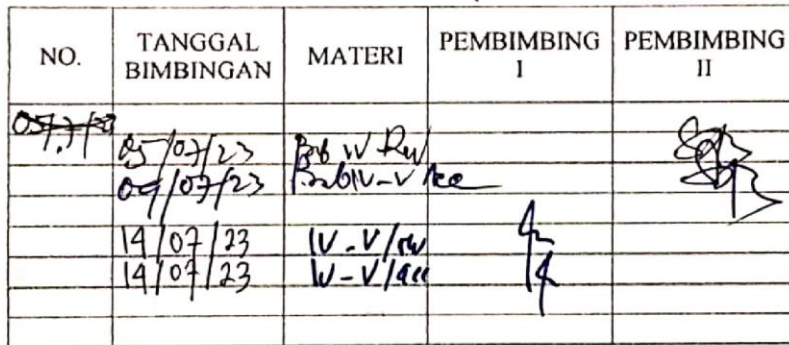 NO. TANGGAL BIMBINGAN MATERI PEMBIMBING I PEMBIMBING II
05/07/23 Bab IV Rev
09/07/23 Bab IV-V/acc
14/07/23 IV-V/rev
14/07/23 IV-V/acc